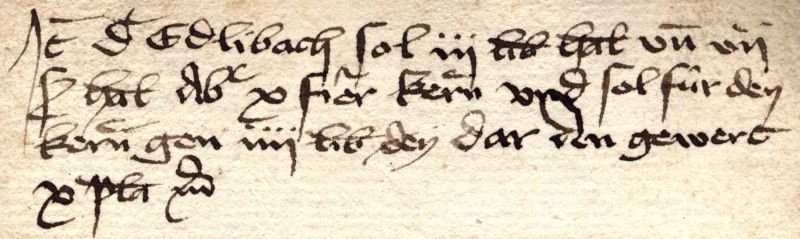 It d Edlibach sol iiij lib hat vn vij
ß hat Ab x fier kern vnd sol für den
kern gen iiij lib den dar an gewert
x pla